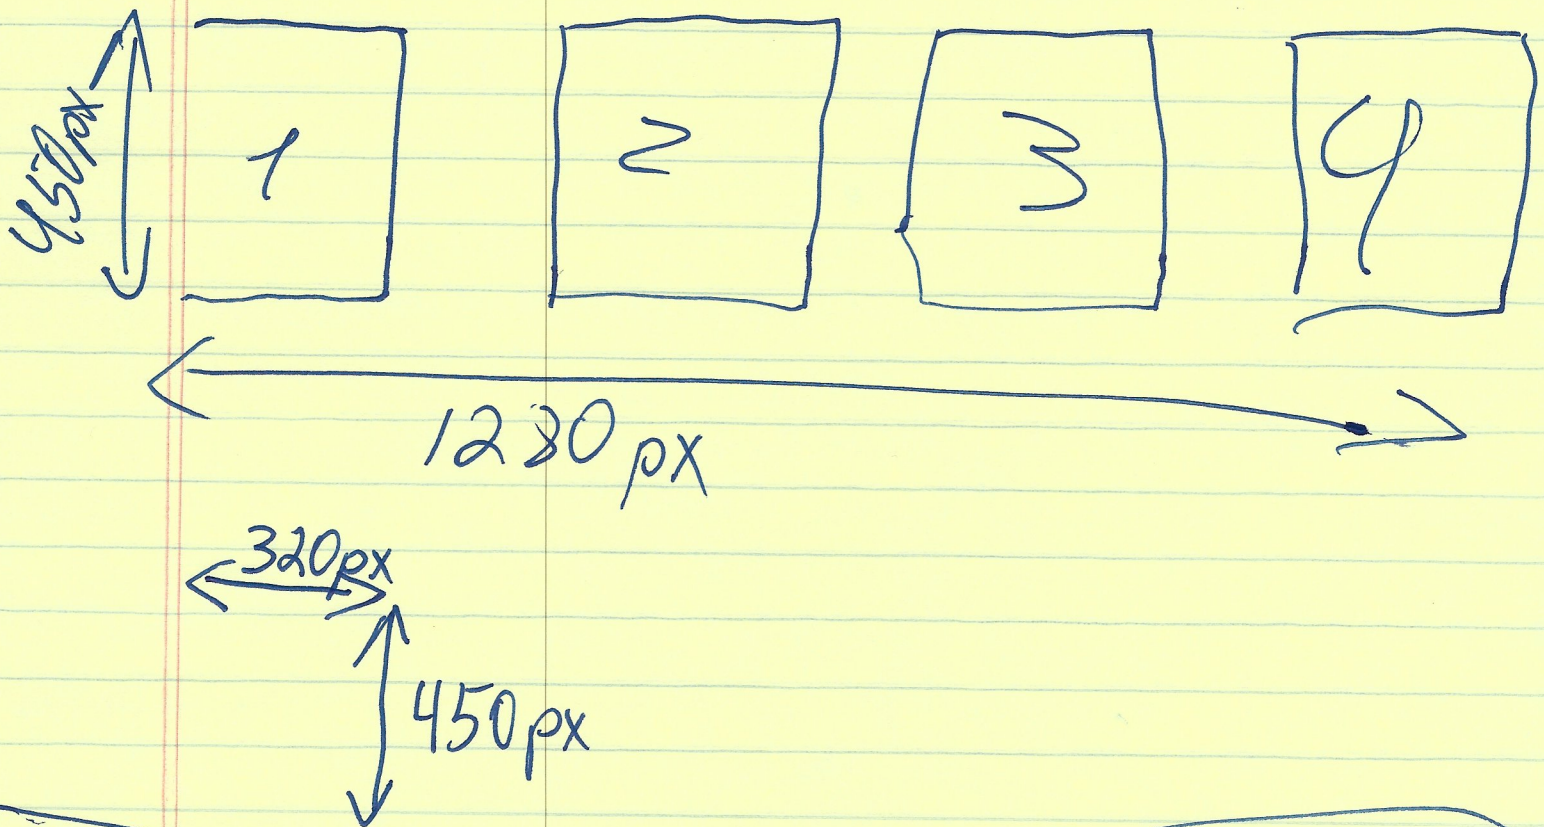 450px
1 2 3 4
1280 px
320px
450px